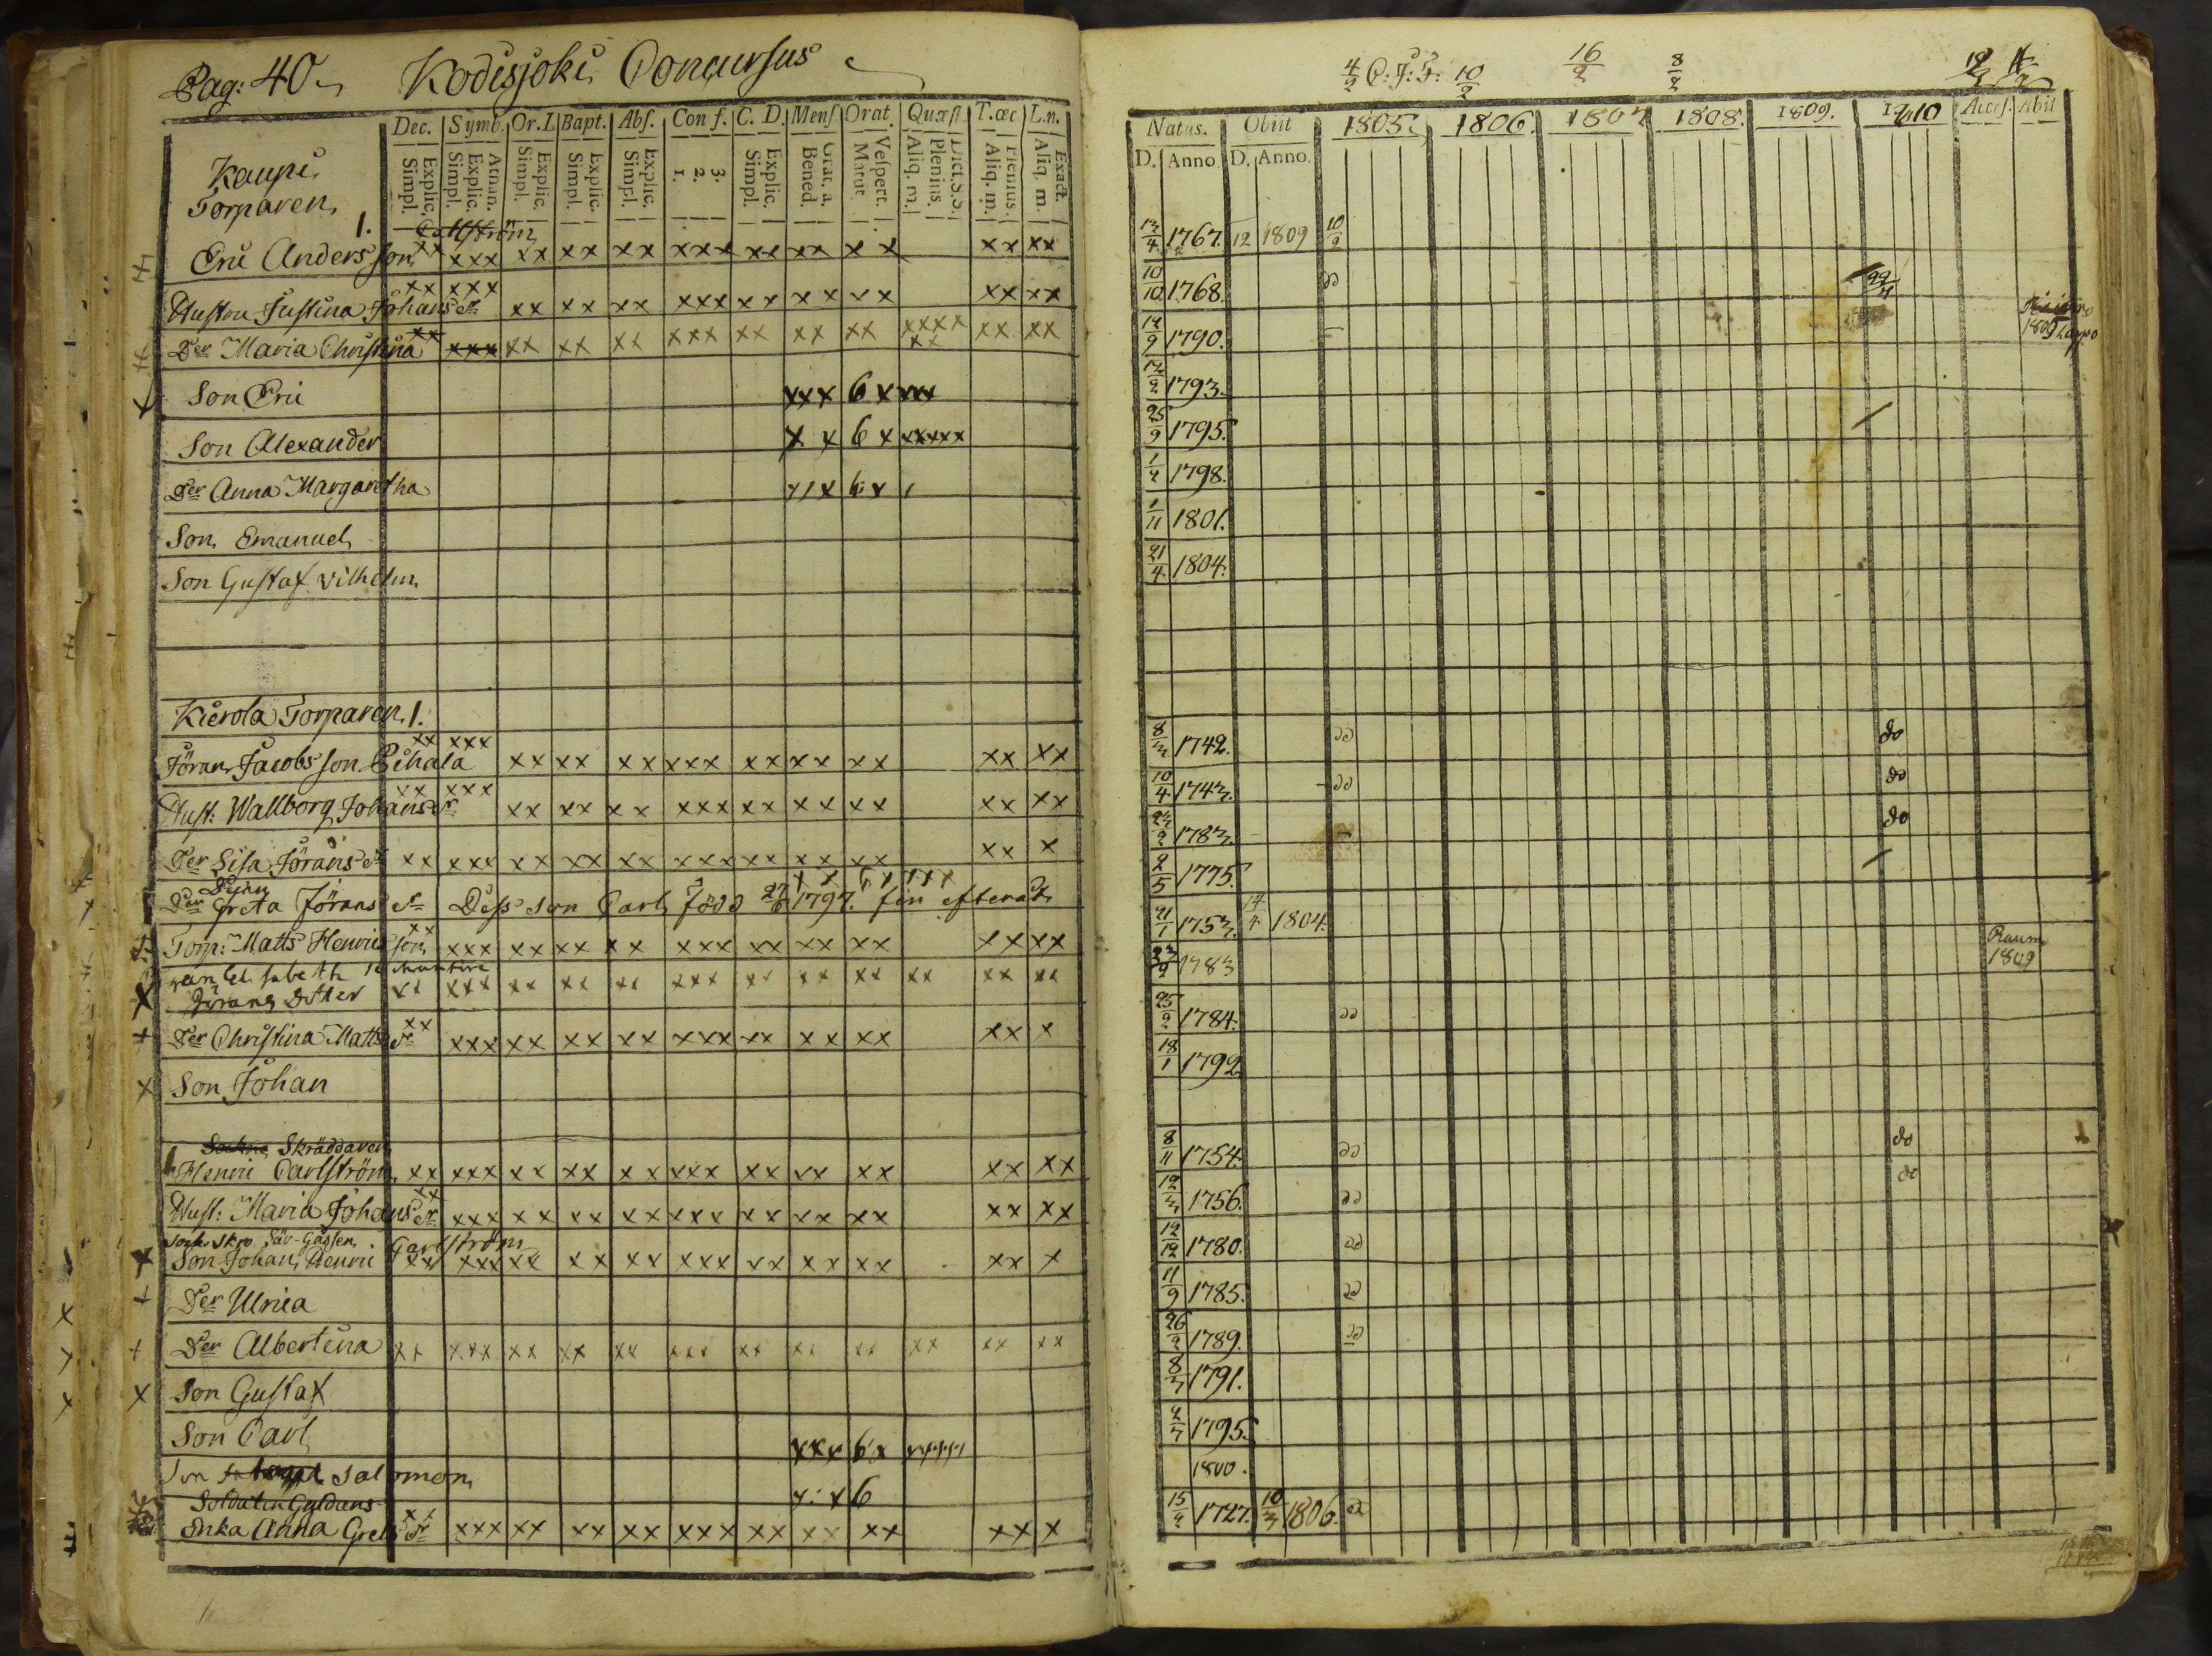 Pag: 40 Kodisjoki Concursus
Dec. Symb. Or.D Bapt. Abs. Conf. C. D. Mens Orat. Quæst. T.œc L.n.
Explic. Simpl. Athan. Explic. Simpl. Explic. Simpl. Explic. Simpl. Explic. Simpl. 3. 2. 1. Explic. Simpl. Grat. a. Bened. Vespert. Matut. Dict.S.S. Plenius. Aliq. m. Plenius. Aliq. m. Exact. Aliq. m.
Kaupi
Torparen
1.
Eric Andersson xx xxx xx xx xx xxx xx xx x x xx xx
Hustru Justina Johansdr xx xxx xx xx xx xxx xx xx xx xx xx
Der Maria Christina xx xxx xx xx xx xxx xx xx xx xxxx xx xx xx
Son Eric xxx 6 x xxx
Son Alexander x x 6 x xxxxx
Der Anna Margaretha
Son Emanuel
Son Gustaf Vilhelm
Kierola Torparen 1.
Jöran Jacobsson Pihala xx xxx xx xx xx xxx xx xx xx xx xx
Hust: Wallborg Johansdr xx xxx xx xx xx xxx xx xx xx xx xx
Der Lisa Jöransdr xx xxx xx xx xx xxx xx xx xx xx x
Der Greta Jöransdr Dess son Carl född 1797.
Torp: Matts Henricsson xx xxx xx xx xx xxx xx xx xx xx xx
Jörans Dotter xx xxx xx xx xx xxx xx xx xx xx xx xx
Der Christina Mattsdr xx xxx xx xx xx xxx xx xx xx xx x
Son Johan
Skräddaren
Henric Carlström xx xxx xx xx xx xxx xx xx xx xx xx
Hust: Maria Johansdr xx xxx xx xx xx xxx xx xx xx xx xx
Carlström
Son Johan Henric xx xxx xx xx xx xxx xx xx xx xx x
Der Ulrica
Der Albertina xx xxx xx xx xx xxx xx xx xx xx xx xx
Son Gustaf
Son Carl xxx 6 x
Son Salomon 6
Soldaten Gyldens
Enka Anna Gretsdr xx xxx xx xx xx xxx xx xx xx xx x
4/2 10/2 16/2 8/2
Natus. Obiit 1805. 1806. 1807 1808. 1809. 1810 Acces. Abiit
D. Anno D. Anno.
13/4 1767. 12 1809 10/2
10/10 1768.
12/9 1790. 1809 Lappo
1793.
25/9 1795.
1798.
1/11 1801.
21/4 1804.
8/3 1742. do
10/4 1743. do
1783. do
2/5 1775.
21/1 1753. 1804.
1783 Raumo 1809
25/2 1784.
18/1 1792
8/11 1754. do
12/3 1756. do
12/12 1780.
11/9 1785.
26/2 1789.
8/3 1791.
1795.
1800.
15/2 1727. 10/3 1806.